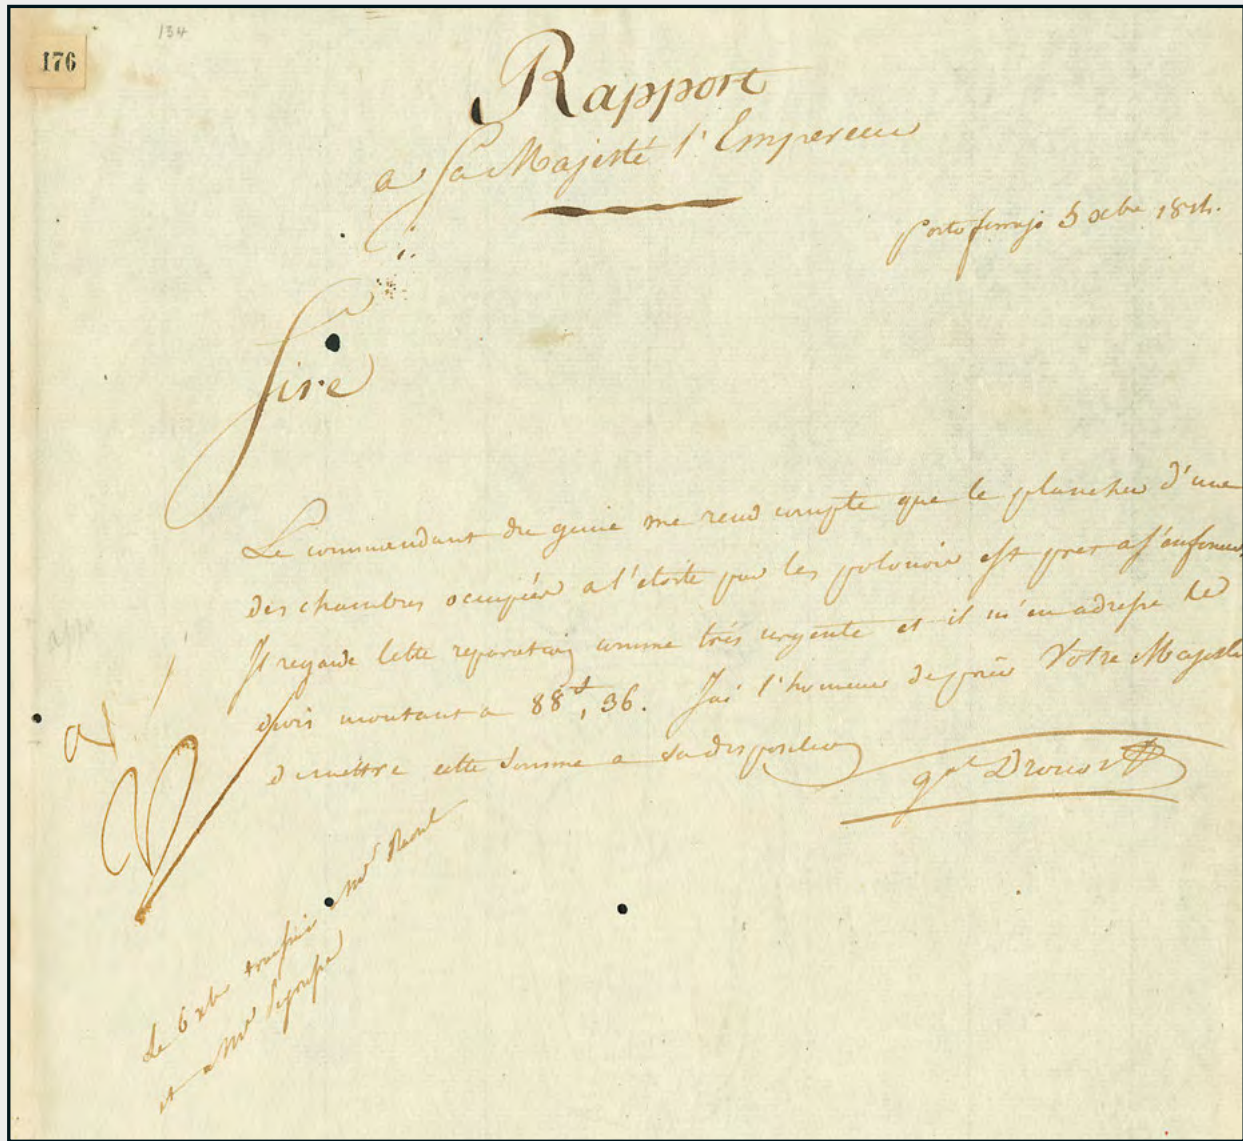 176
134
Rapport
a Sa Majesté l'Empereur
Portoferrajo 5 xbre 1814.
Sire
Le commandant du genie me rend compte que le plancher d'une
des chambres occupées a l'étoile par les polonois est pret a s'enfoncer.
Il regarde cette reparation comme très urgente et il m'en adresse le
devis montant a 88f, 36. J'ai l'honneur de prier Votre Majesté
de mettre cette somme a sa disposition
gal Drouot
Le 6 xbre Mr Raoul
et a Mr